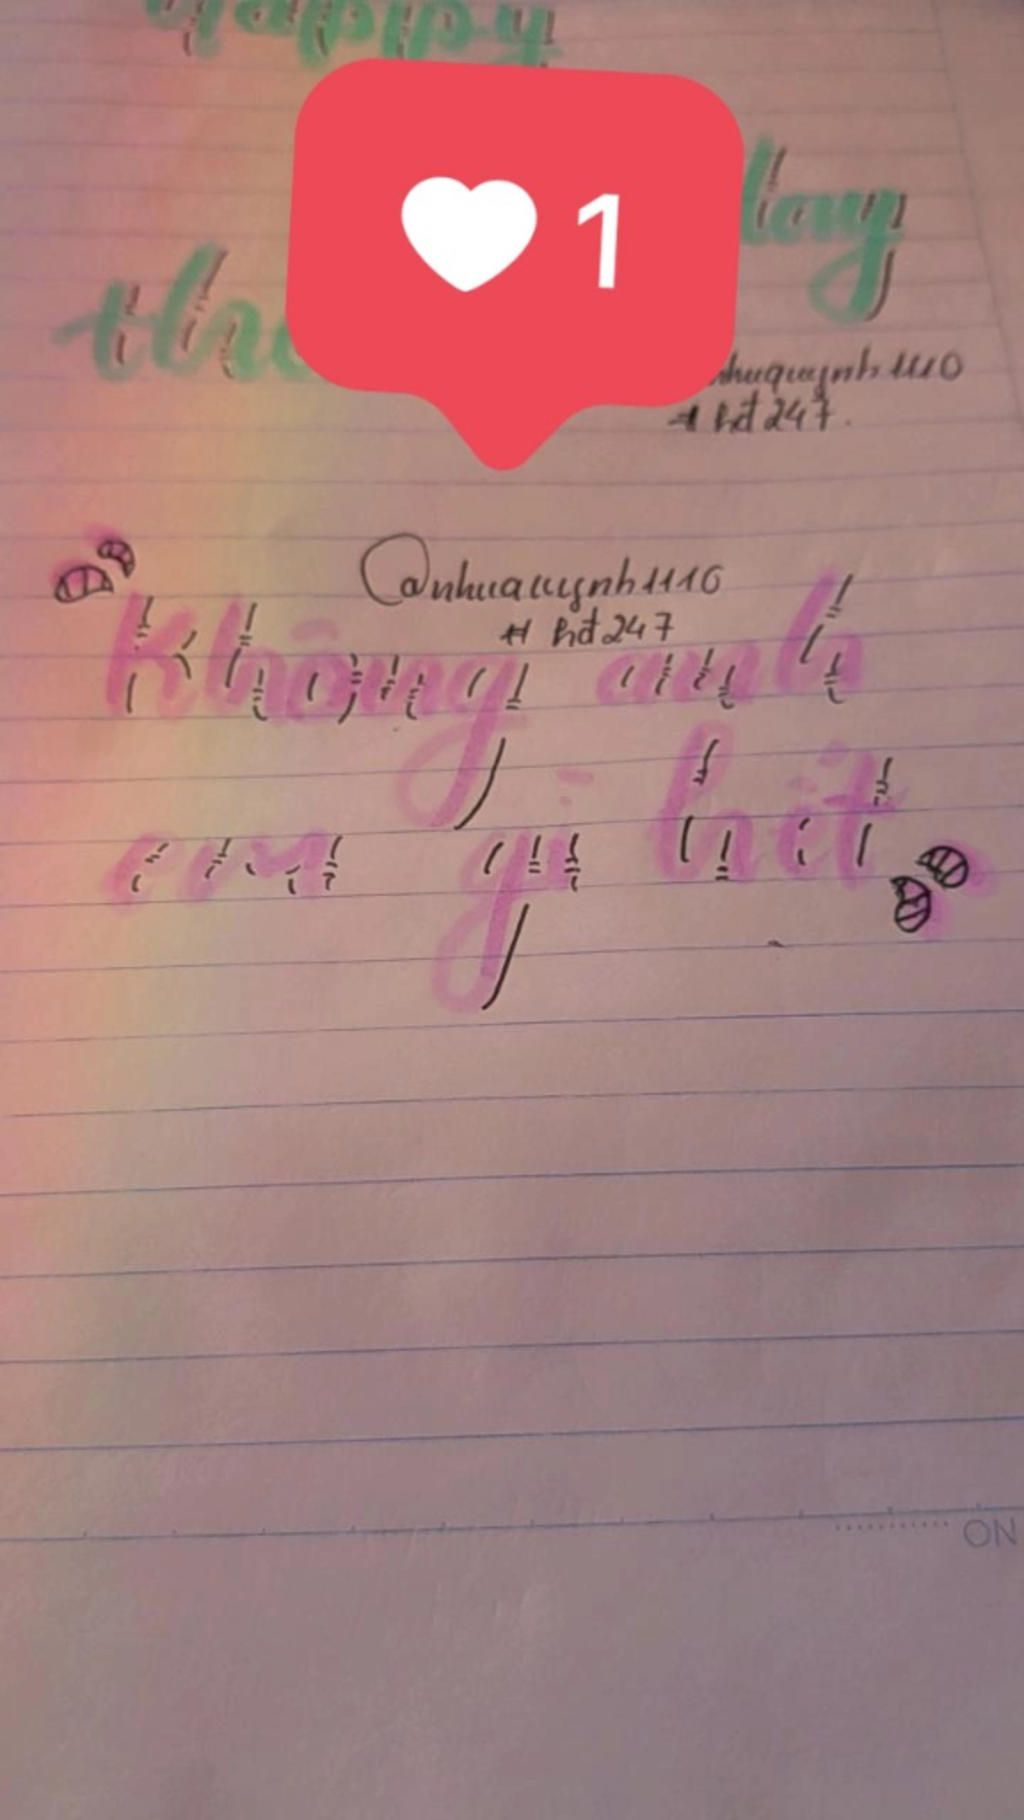 happy
day
1
@nhuquynh1110
# hđ 247.
@nhuquynh1110
# hđ 247
Không anh
em gì hết
NO